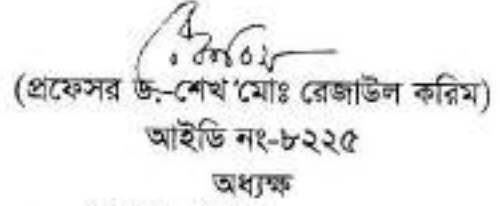 (প্রফেসর ড.-শেখ মোঃ রেজাউল করিম)
আইডি নং-৮২২৫
অধ্যক্ষ